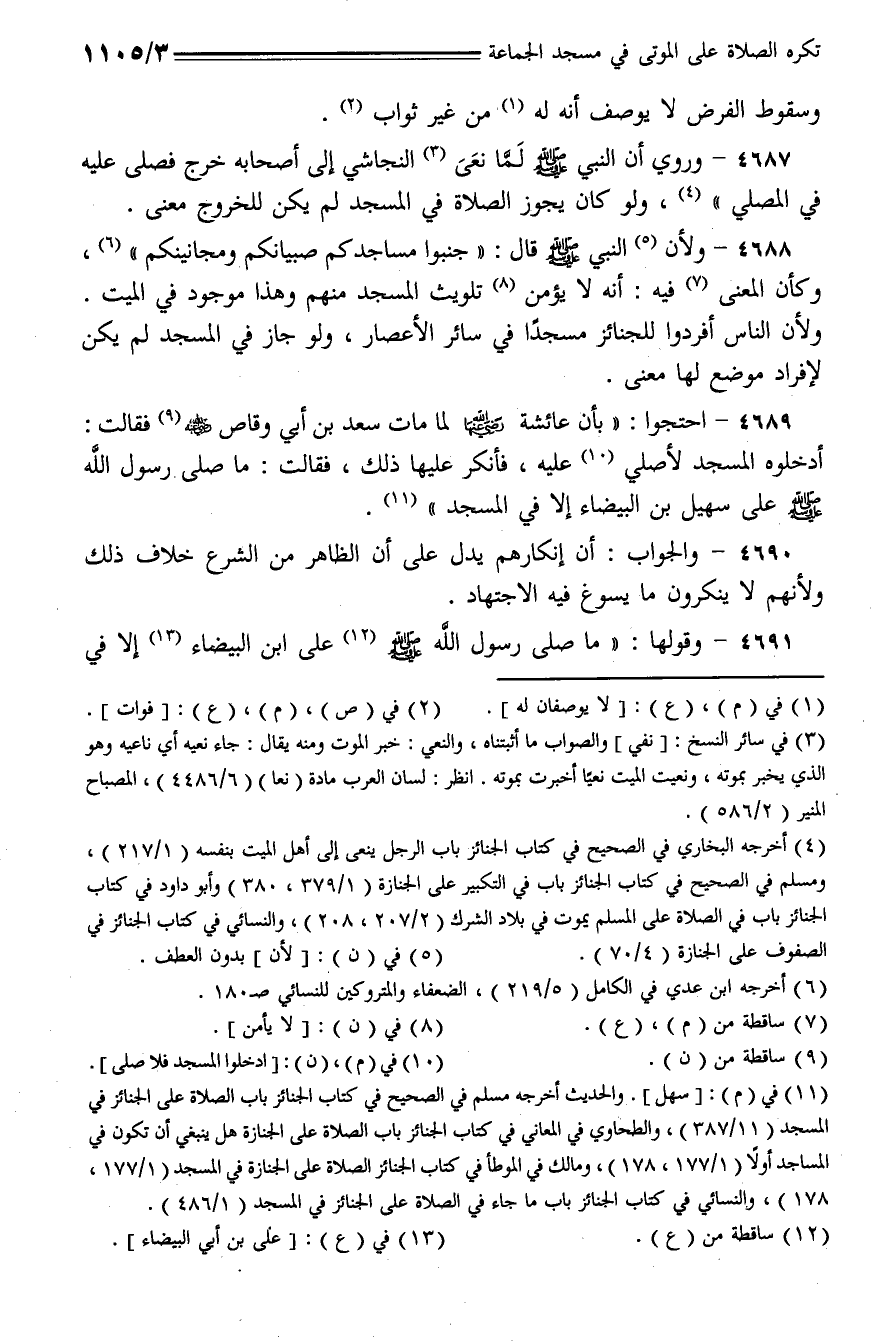 تكره الصلاة على الموتى في مسجد الجماعة ــــــ ٣/١١٠٥
وسقوط الفرض لا يوصف أنه له (١) من غير ثواب (٢) .
٤٦٨٧ - وروي أن النبي ﷺ لَمَّا نعَىَ (٣) النجاشي إلى أصحابه خرج فصلى عليه
في المصلي » (٤) ، ولو كان يجوز الصلاة في المسجد لم يكن للخروج معنى .
٤٦٨٨ - ولأن (٥) النبي ﷺ قال : « جنبوا مساجدكم صبيانكم ومجانينكم » (٦) ،
وكأن المعنى (٧) فيه : أنه لا يؤمن (٨) تلويث المسجد منهم وهذا موجود في الميت .
ولأن الناس أفردوا للجنائز مسجدًا في سائر الأعصار ، ولو جاز في المسجد لم يكن
لإفراد موضع لها معنى .
٤٦٨٩ - احتجوا : « بأن عائشة رضي الله عنها لما مات سعد بن أبي وقاص رضي الله عنه (٩) فقالت :
أدخلوه المسجد لأصلي (١٠) عليه ، فأنكر عليها ذلك ، فقالت : ما صلى رسول اللَّه
ﷺ على سهيل بن البيضاء إلا في المسجد » (١١) .
٤٦٩٠ - والجواب : أن إنكارهم يدل على أن الظاهر من الشرع خلاف ذلك
ولأنهم لا ينكرون ما يسوغ فيه الاجتهاد .
٤٦٩١ - وقولها : « ما صلى رسول اللَّه ﷺ (١٢) على ابن البيضاء (١٣) إلا في
(١) في ( م ) ، ( ع ) : [ لا يوصفان له ] . (٢) في ( ص ) ، ( م ) ، ( ع ) : [ فوات ] .
(٣) في سائر النسخ : [ نفي ] والصواب ما أثبتناه ، والنعي : خبر الموت ومنه يقال : جاء نعيه أي ناعيه وهو
الذي يخبر بموته ، ونعيت الميت نعيًا أخبرت بموته . انظر : لسان العرب مادة ( نعا ) ( ٤٤٨٦/٦ ) ، المصباح
المنير ( ٥٨٦/٢ ) .
(٤) أخرجه البخاري في الصحيح في كتاب الجنائز باب الرجل ينعى إلى أهل الميت بنفسه ( ٢١٧/١ ) ،
ومسلم في الصحيح في كتاب الجنائز باب في التكبير على الجنازة ( ٣٧٩/١ ، ٣٨٠ ) وأبو داود في كتاب
الجنائز باب في الصلاة على المسلم يموت في بلاد الشرك ( ٢٠٧/٢ ، ٢٠٨ ) ، والنسائي في كتاب الجنائز في
الصفوف على الجنازة ( ٧٠/٤ ) . (٥) في ( ن ) : [ لأن ] بدون العطف .
(٦) أخرجه ابن عدي في الكامل ( ٢١٩/٥ ) ، الضعفاء والمتروكين للنسائي صـ١٨٠ .
(٧) ساقطة من ( م ) ، ( ع ) . (٨) في ( ن ) : [ لا يأمن ] .
(٩) ساقطة من ( ن ) . (١٠) في ( م ) ، ( ن ) : [ ادخلوا المسجد فلا صلى ] .
(١١) في ( م ) : [ سهل ] . والحديث أخرجه مسلم في الصحيح في كتاب الجنائز باب الصلاة على الجنائز في
المسجد ( ٣٨٧/١١ ) ، والطحاوي في المعاني في كتاب الجنائز باب الصلاة على الجنازة هل ينبغي أن تكون في
المساجد أولًا ( ١٧٧/١ ، ١٧٨ ) ، ومالك في الموطأ في كتاب الجنائز الصلاة على الجنازة في المسجد ( ١٧٧/١ ،
١٧٨ ) ، والنسائي في كتاب الجنائز باب ما جاء في الصلاة على الجنائز في المسجد ( ٤٨٦/١ ) .
(١٢) ساقطة من ( ع ) . (١٣) في ( ع ) : [ على بن أبي البيضاء ] .